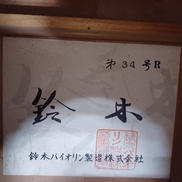 第34号R
鈴木
鈴木バイオリン製造株式会社